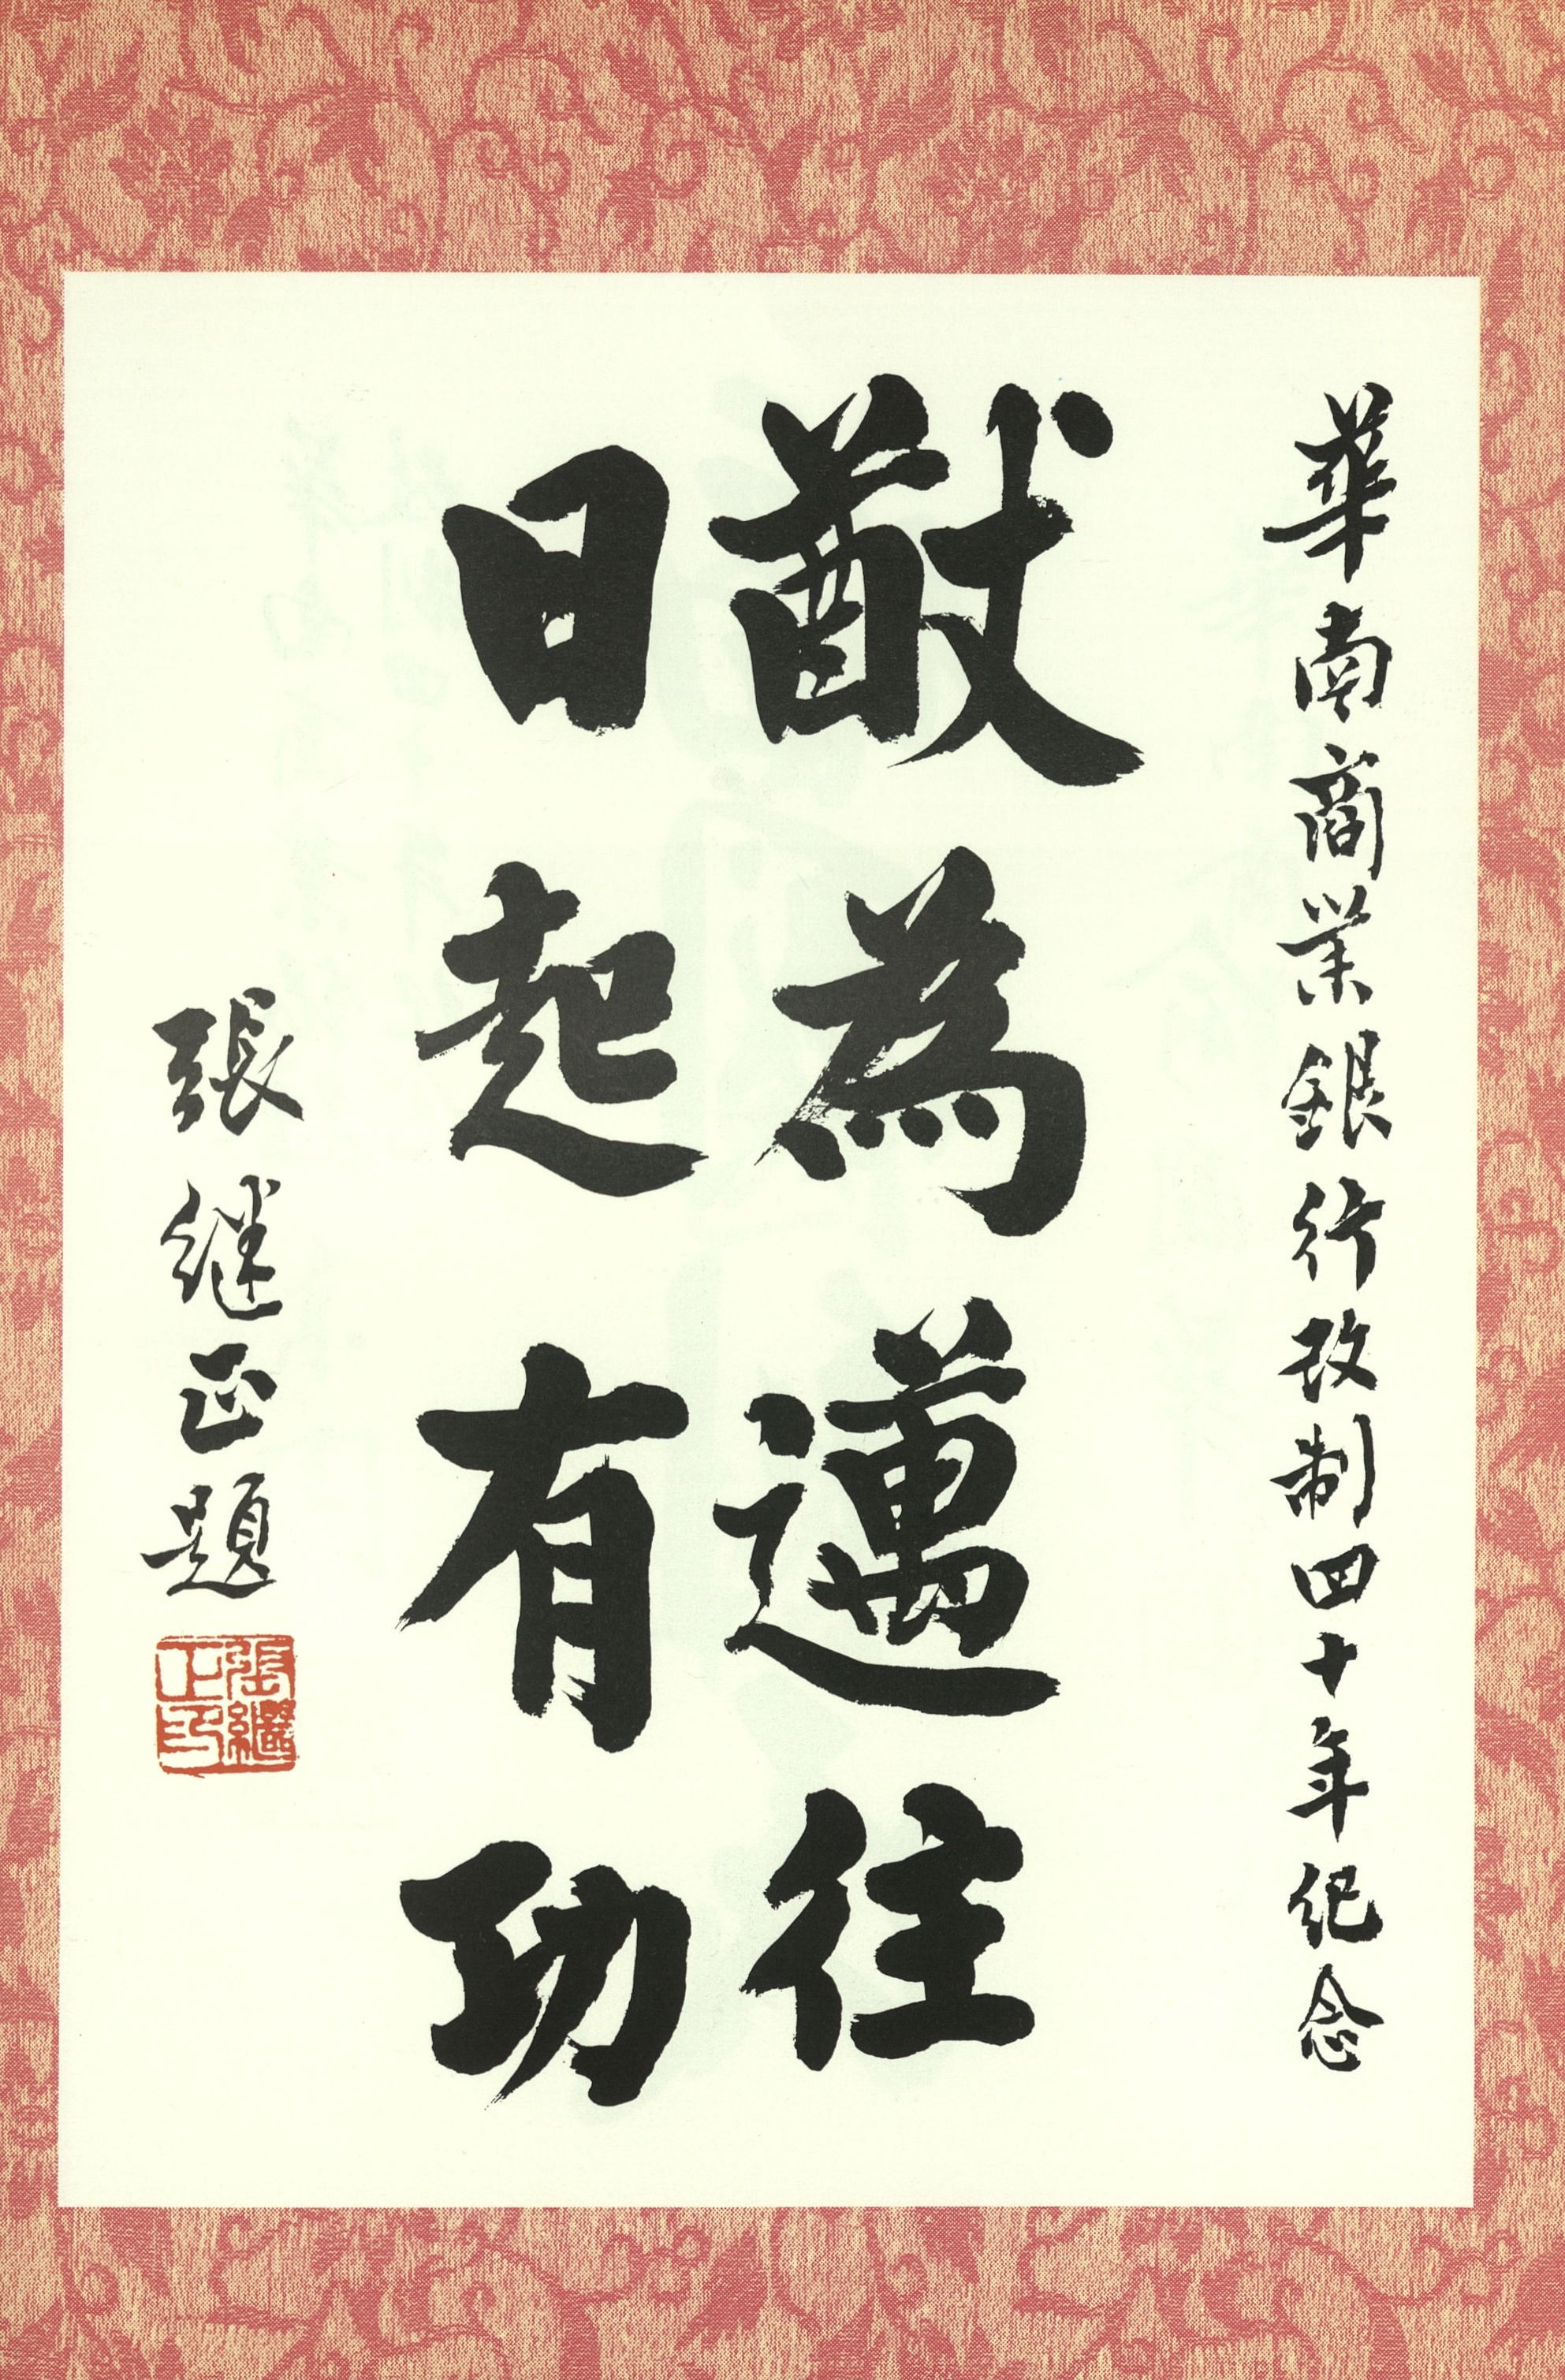 華南商業銀行改制四十年紀念
猷為邁往
日起有功
張继正題
張繼
正印